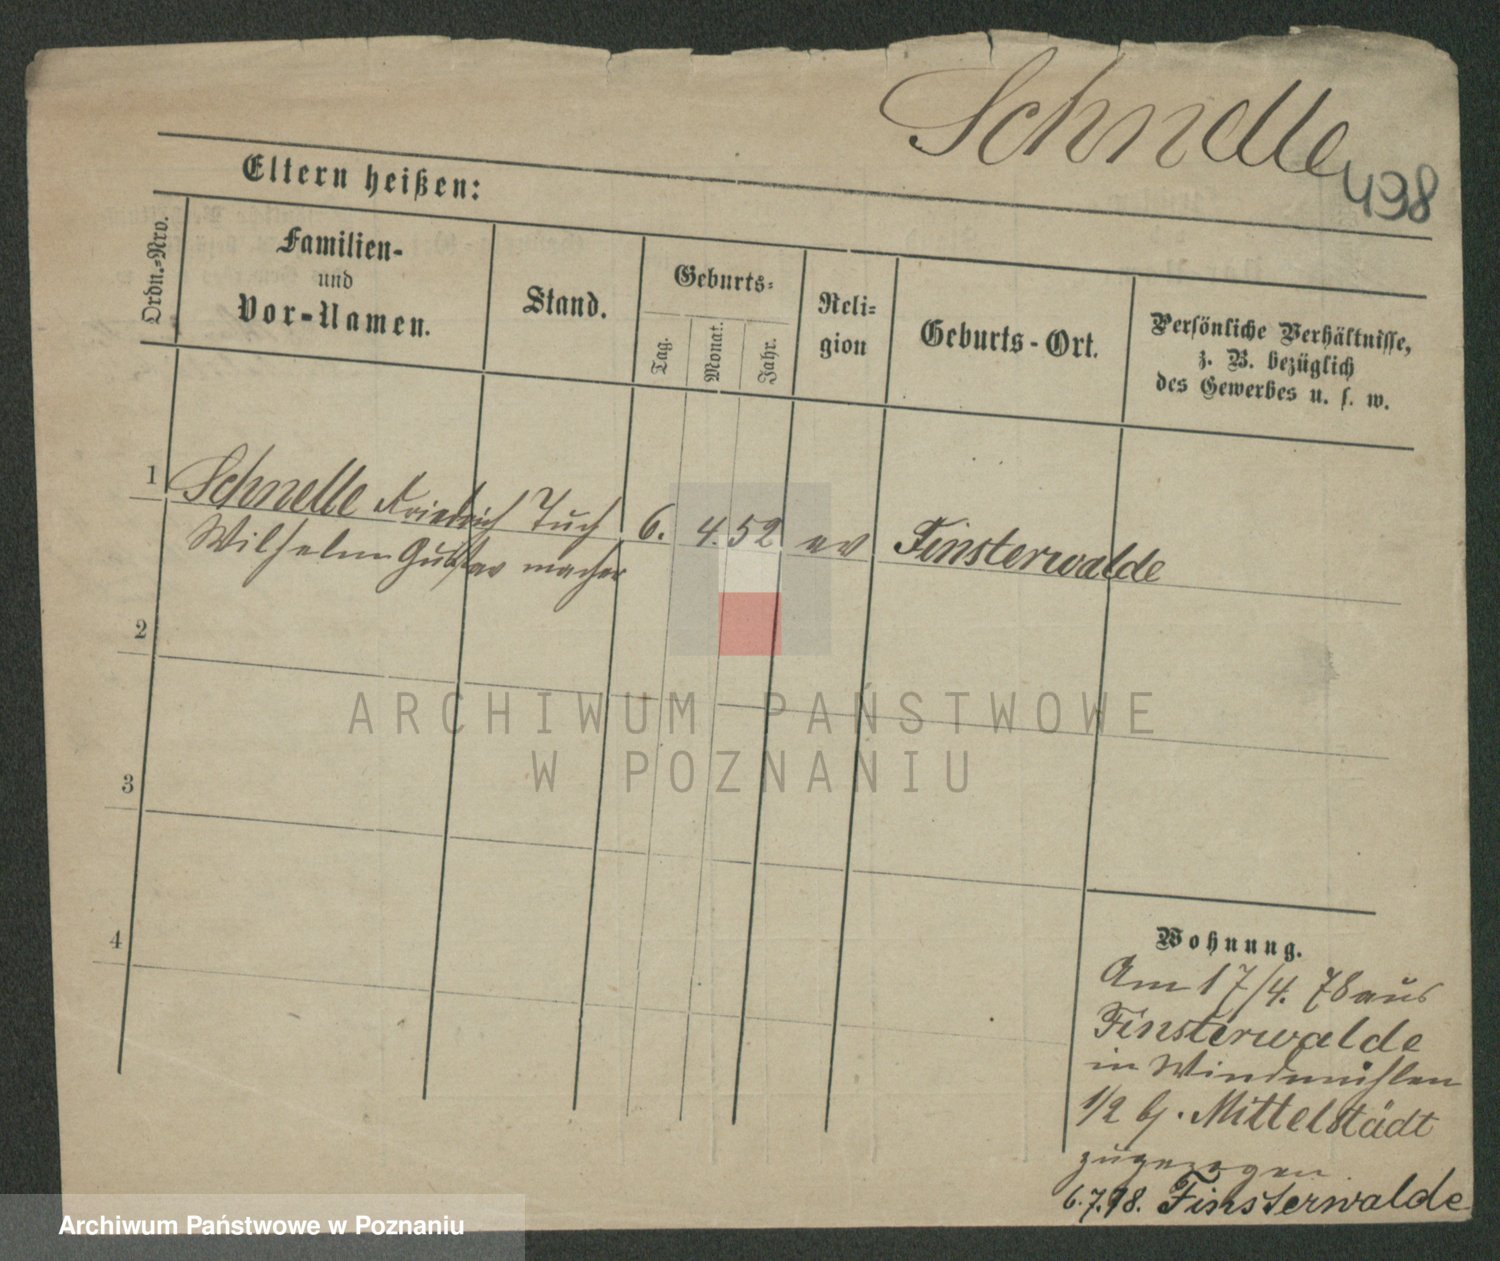 Schnelle
498
Eltern heißen:
Ordn.=Nro.
Familien-
und
Vor-Namen.
Stand.
Geburts=
Tag.
Monat.
Jahr.
Reli=
gion
Geburts-Ort.
Persönliche Verhältnisse,
z. B. bezüglich
des Gewerbes u. s. w.
1 Schnelle Friedrich Tuch 6. 4. 52 ev Finsterwalde
Wilhelm Gustav macher
2
3
4
ARCHIWUM PAŃSTWOWE
W POZNANIU
Wohnung.
Am 17/4. 78 aus
Finsterwalde
in Windmühlen
1/2 bj. Mittelstädt
zugezogen
6.7.98. Finsterwalde
Archiwum Państwowe w Poznaniu